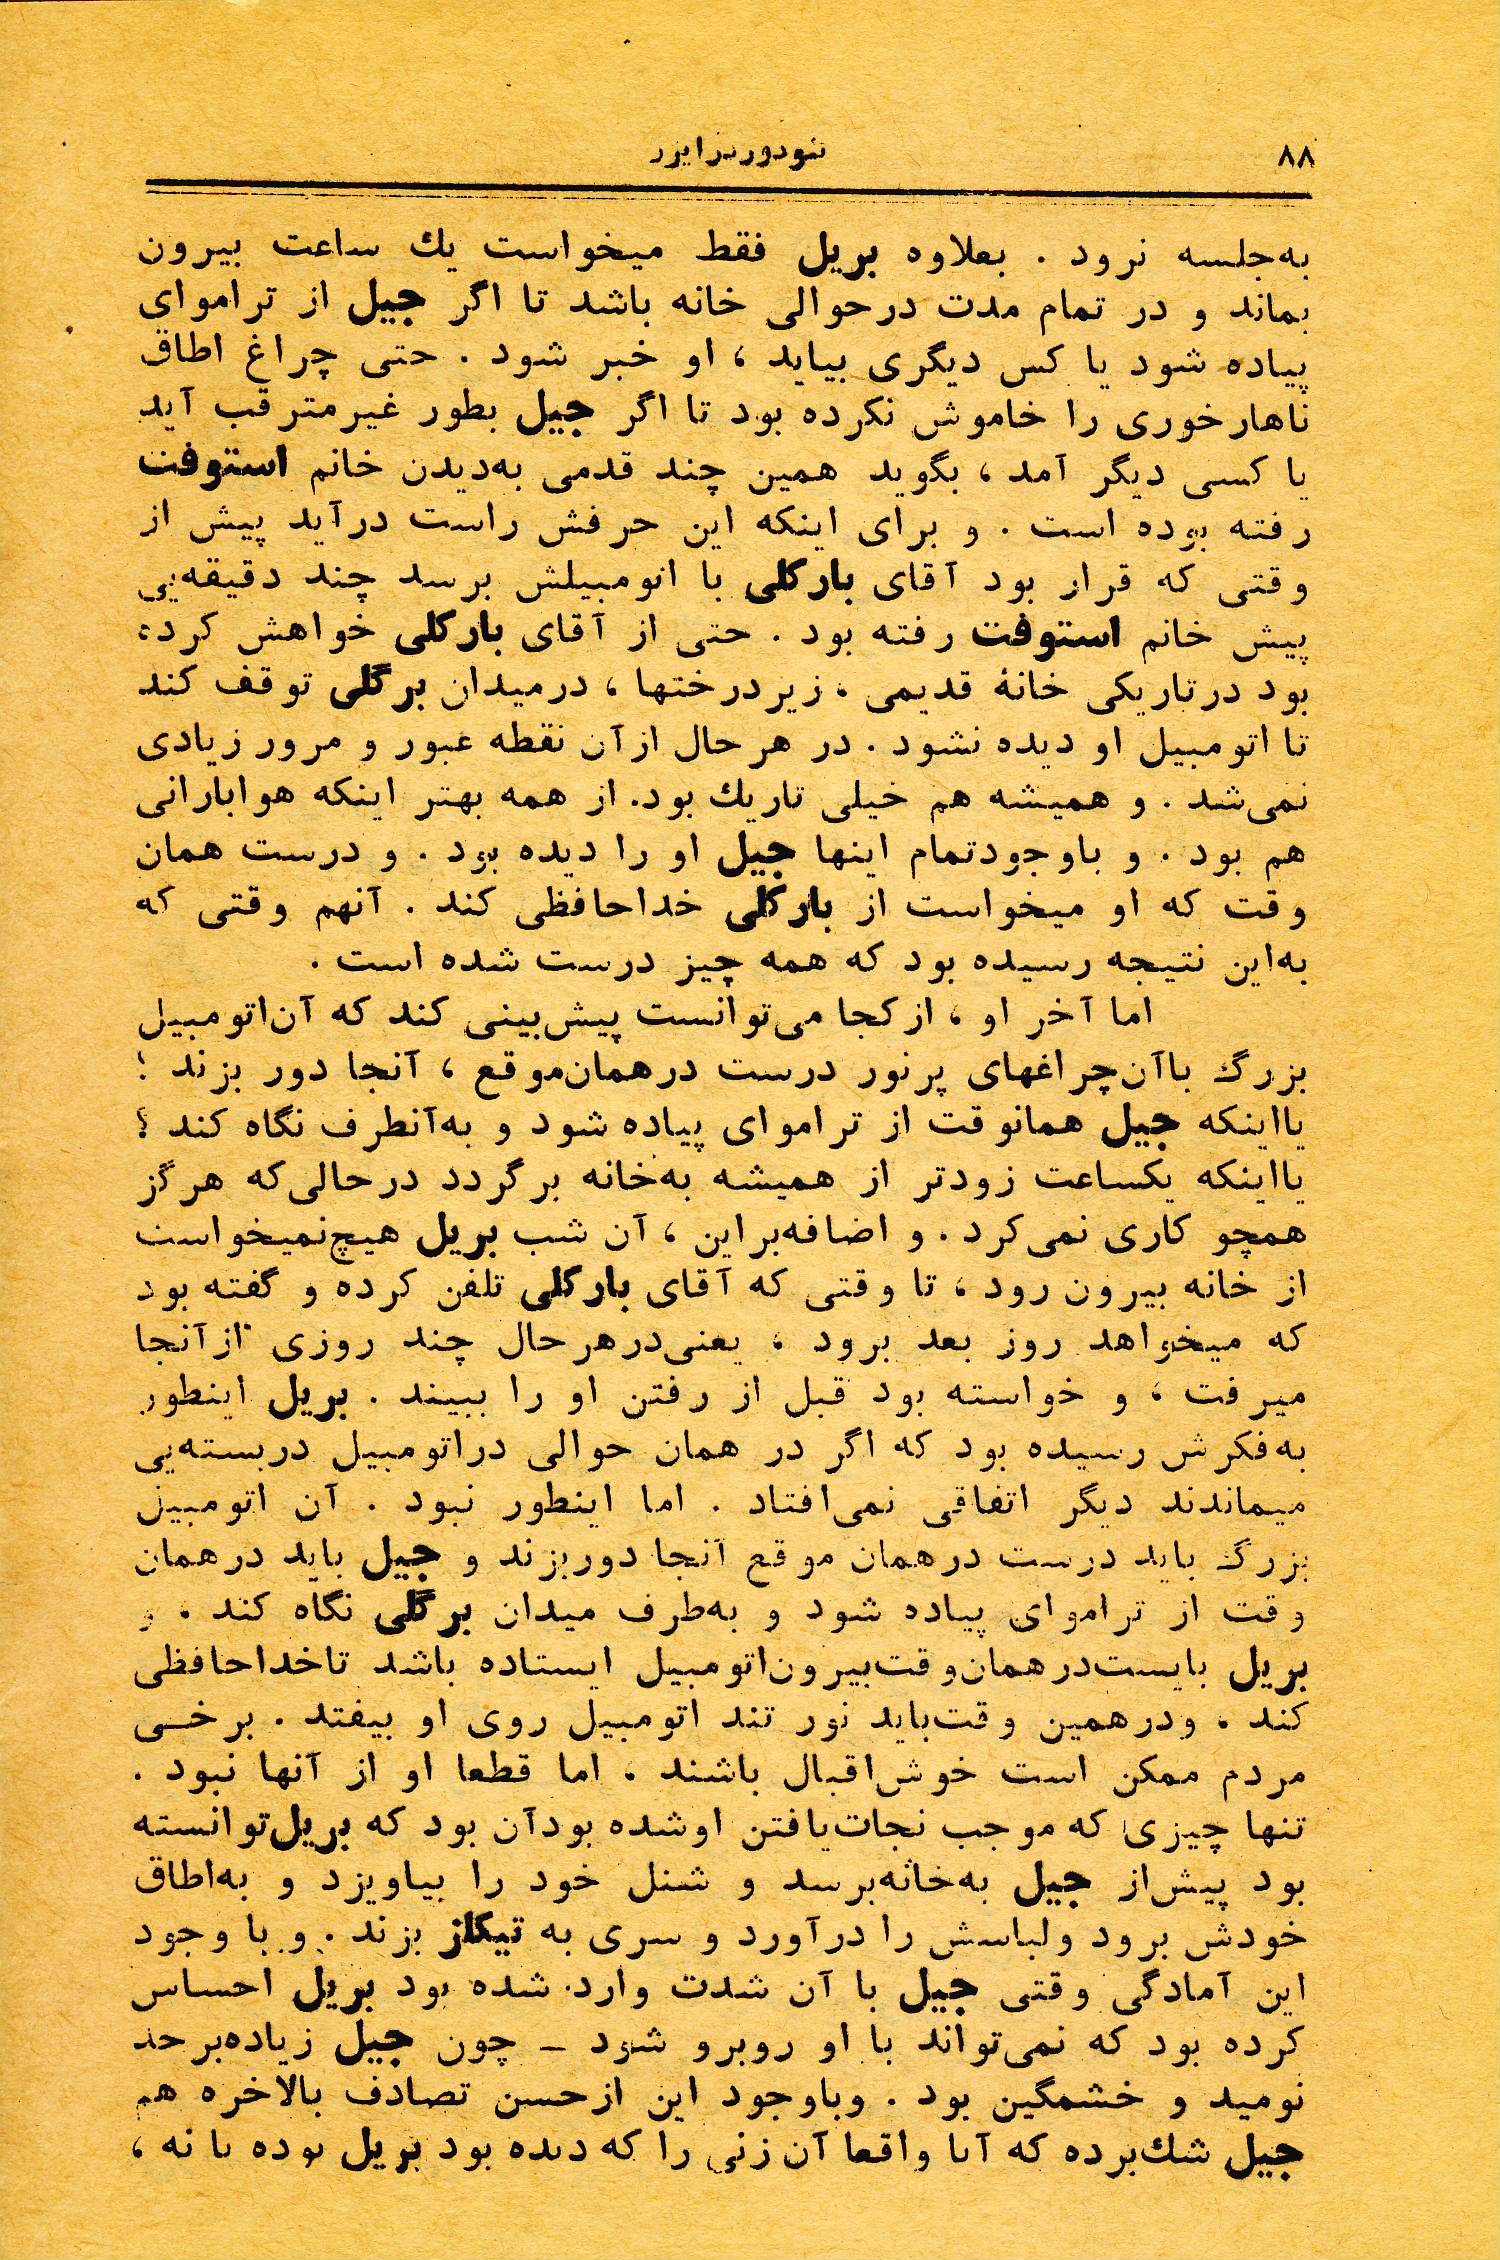 ۸۸
تئودور درایزر
به‌جلسه نرود . بعلاوه بریل فقط میخواست یك ساعت بیرون
بماند و در تمام مدت درحوالی خانه باشد تا اگر جیل از تراموای
پیاده شود یا کس دیگری بیاید ، او خبر شود . حتی چراغ اطاق
ناهارخوری را خاموش نکرده بود تا اگر جیل بطور غیرمترقب آید
یا کسی دیگر آمد ، بگوید همین چند قدمی به‌دیدن خانم استوفت
رفته بوده است . و برای اینکه این حرفش راست درآید پیش از
وقتی که قرار بود آقای بارکلی با اتومبیلش برسد چند دقیقه‌یی
پیش خانم استوفت رفته بود . حتی از آقای بارکلی خواهش کرده
بود درتاریکی خانهٔ قدیمی ، زیردرختها ، درمیدان برگلی توقف کند
تا اتومبیل او دیده نشود . در هرحال ازآن نقطه عبور و مرور زیادی
نمی‌شد . و همیشه هم خیلی تاریك بود. از همه بهتر اینکه هوابارانی
هم بود . و باوجودتمام اینها جیل او را دیده بود . و درست همان
وقت که او میخواست از بارکلی خداحافظی کند . آنهم وقتی که
به‌این نتیجه رسیده بود که همه چیز درست شده است .
اما آخر او ، ازکجا می‌توانست پیش‌بینی کند که آن‌اتومبیل
بزرگ باآن‌چراغهای پرنور درست درهمان‌موقع ، آنجا دور بزند ؛
یااینکه جیل همانوقت از تراموای پیاده شود و به‌آنطرف نگاه کند ؟
یااینکه یکساعت زودتر از همیشه به‌خانه برگردد درحالی‌که هرگز
همچو کاری نمی‌کرد . و اضافه‌براین ، آن شب بریل هیچ‌نمیخواست
از خانه بیرون رود ، تا وقتی که آقای بارکلی تلفن کرده و گفته بود
که میخواهد روز بعد برود ، یعنی‌درهرحال چند روزی ازآنجا
میرفت ، و خواسته بود قبل از رفتن او را ببیند . بریل اینطور
به‌فکرش رسیده بود که اگر در همان حوالی دراتومبیل دربسته‌یی
میماندند دیگر اتفاقی نمی‌افتاد . اما اینطور نبود . آن اتومبیل
بزرگ باید درست درهمان موقع آنجا دوربزند و جیل باید درهمان
وقت از تراموای پیاده شود و به‌طرف میدان برگلی نگاه کند . و
بریل بایست‌درهمان‌وقت‌بیرون‌اتومبیل ایستاده باشد تاخداحافظی
کند . ودرهمین وقت‌باید نور تند اتومبیل روی او بیفتد . برخی
مردم ممکن است خوش‌اقبال باشند ، اما قطعا او از آنها نبود .
تنها چیزی که موجب نجات‌یافتن اوشده بودآن بود که بریل‌توانسته
بود پیش‌از جیل به‌خانه‌برسد و شنل خود را بیاویزد و به‌اطاق
خودش برود ولباسش را درآورد و سری به تیکاز بزند . و با وجود
این آمادگی وقتی جیل با آن شدت وارد شده بود بریل احساس
کرده بود که نمی‌تواند با او روبرو شود – چون جیل زیاده‌برحد
نومید و خشمگین بود . وباوجود این ازحسن تصادف بالاخره هم
جیل شك‌برده که آیا واقعا آن زنی را که دیده بود بریل بوده یا نه ،